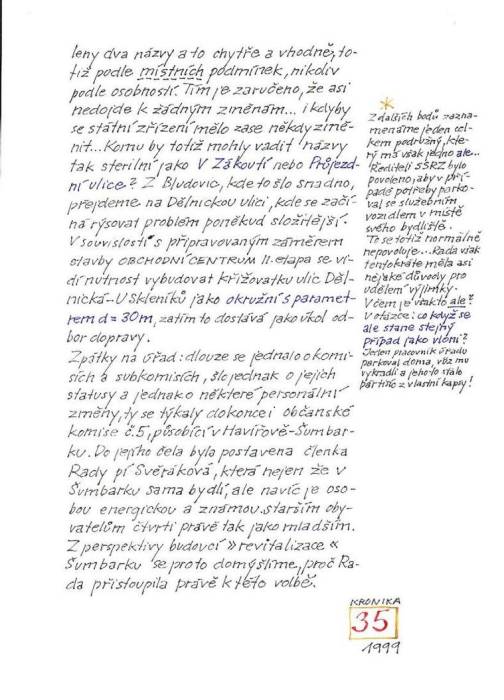 leny dva názvy a to chytře a vhodně, to-
tiž podle místních podmínek, nikoliv
podle osobností. Tím je zaručeno, že asi
nedojde k žádným změnám... i kdyby
se státní zřízení mělo zase někdy změ-
nit... Komu by totiž mohly vadit názvy
tak sterilní jako V Zákoutí nebo Průjezd-
ní ulice? Z Bludovic, kde to šlo snadno,
přejdeme na Dělnickou ulici, kde se začí-
ná rýsovat problém poněkud složitější.
V souvislosti s připravovaným záměrem
stavby OBCHODNÍ CENTRUM II. etapa se vi-
dí nutnost vybudovat křižovatku ulic Děl-
nická - U Skleníků jako okružní s paramet-
rem d = 30m, zatím to dostává jako úkol od-
bor dopravy.
Zpátky na úřad: dlouze se jednalo o komi-
sích a subkomisích, šlo jednak o jejich
statusy a jednak o některé personální
změny, ty se týkaly dokonce i občanské
komise č.5, působící v Havířově-Šumbar-
ku. Do jejího čela byla postavena členka
Rady pí Svěráková, která nejen že v
Šumbarku sama bydlí, ale navíc je oso-
bou energickou a známou starším oby-
vatelům čtvrti právě tak jako mladším.
Z perspektivy budoucí »revitalizace«
Šumbarku se proto domýšlíme, proč Ra-
da přistoupila právě k této volbě.
*
Z dalších bodů zazna-
menáme jeden cel-
kem podružný, kte-
rý má však jedno ale...
Řediteli SSRZ bylo
povoleno, aby v pří-
padě potřeby parko-
val se služebním
vozidlem v místě
svého bydliště.
To se totiž normálně
nepovoluje... Rada však
tentokráte měla asi
nějaké důvody pro
udělení výjimky.
V čem je však to ale?
V otázce: co když se
ale stane stejný
případ jako vloni?
Jeden pracovník úřadu
parkoval doma, vůz mu
vykradli a jeho to stálo
partii z vlastní kapsy!
KRONIKA
35
1999